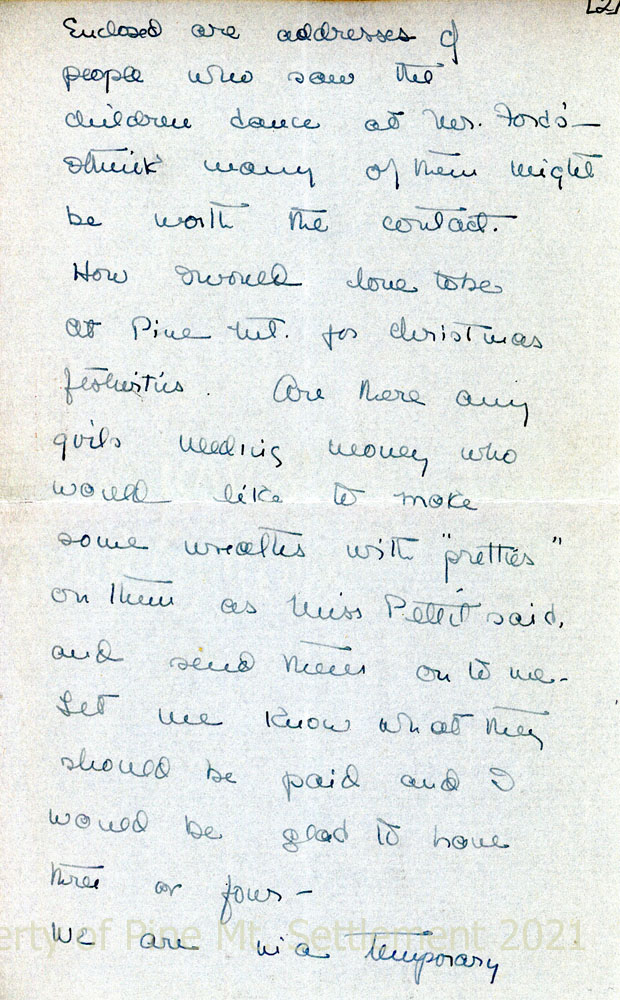 [2]
Enclosed are addresses of
people who saw the
children dance at Mrs. Ford's—
I think many of them might
be worth the contact.
How I would love to be
at Pine Mt. for Christmas
festivities. Are there any
girls needing money who
would like to make
some wreaths with "pretties"
on them as Miss Pettit said,
and send them on to me—
Let me know what they
should be paid and I
would be glad to have
three or four—
We are in a temporary
erty of Pine Mt. Settlement 2021